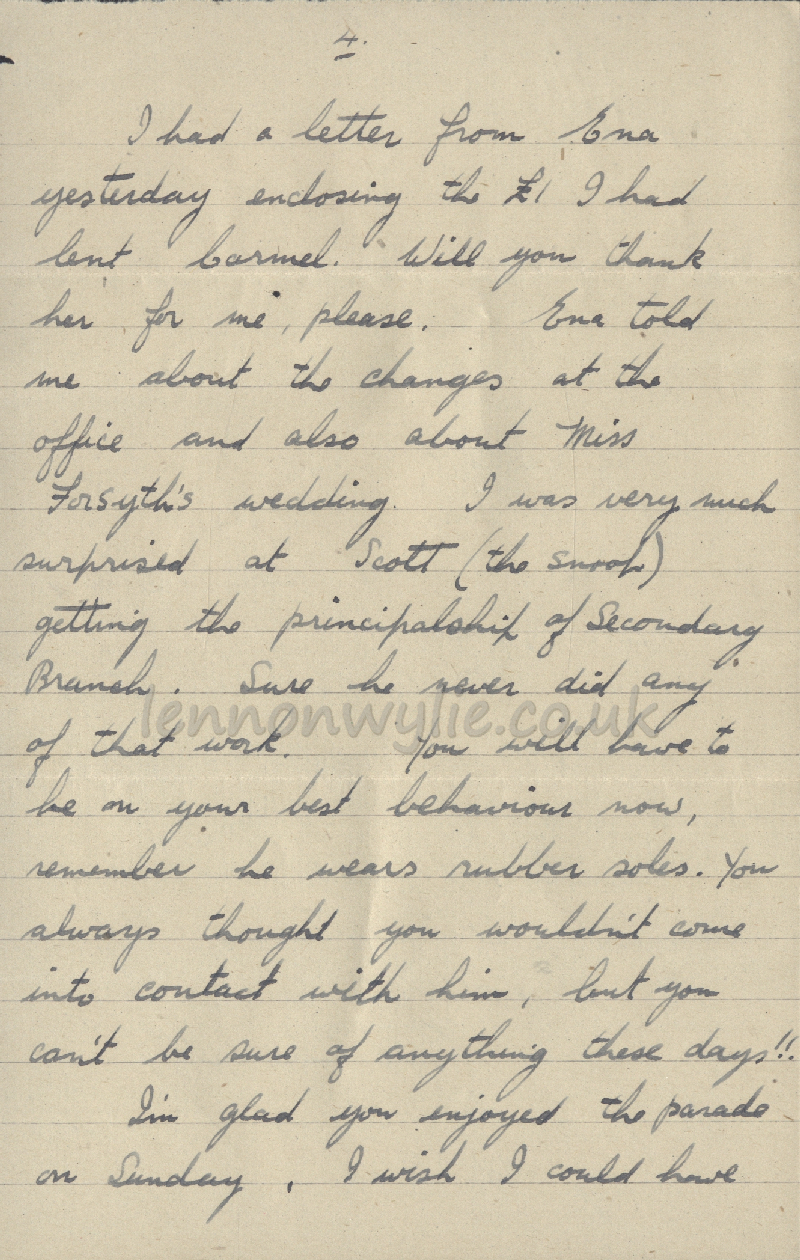 4.
I had a letter from Ena
yesterday enclosing the £1 I had
lent Carmel. Will you thank
her for me, please. Ena told
me about the changes at the
office and also about Miss
Forsyth's wedding. I was very much
surprised at Scott (the snoop)
getting the principalship of Secondary
Branch. Sure he never did any
lennonwylie.co.uk
of that work. You will have to
be on your best behaviour now,
remember he wears rubber soles. You
always thought you wouldn't come
into contact with him, but you
can't be sure of anything these days!!.
I'm glad you enjoyed the parade
on Sunday, I wish I could have